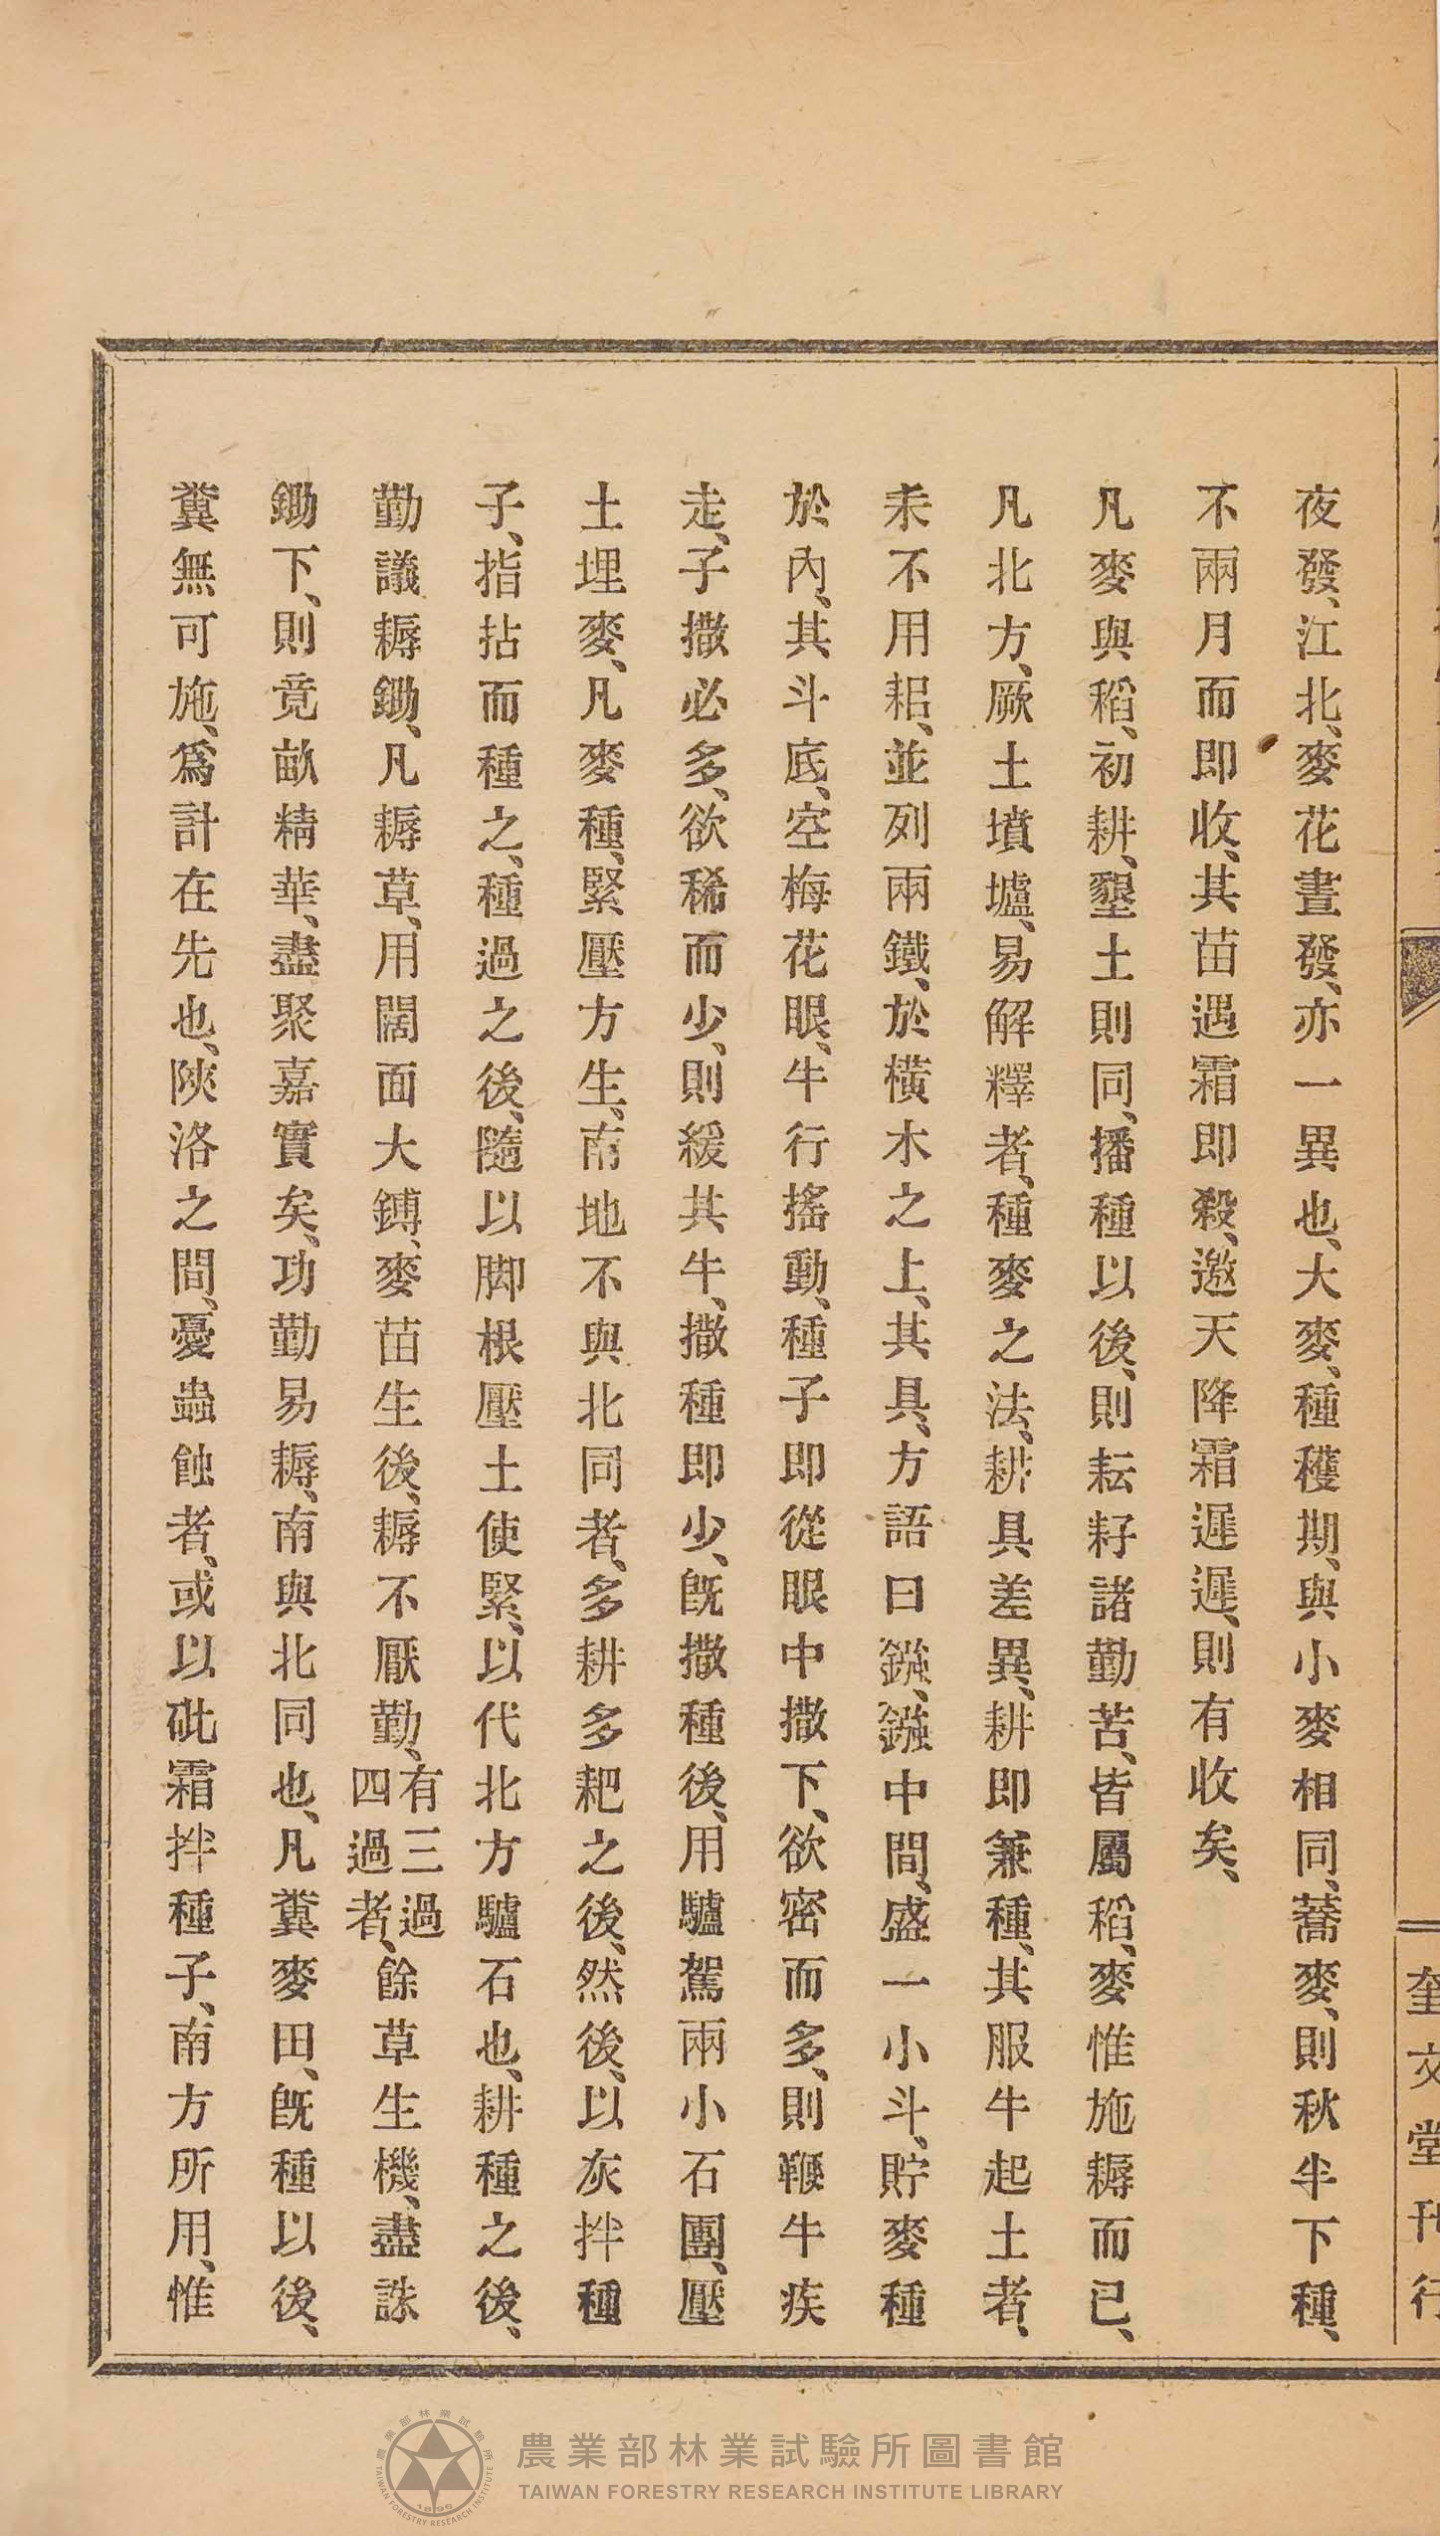 夜發、江北、麥花晝發、亦一異也、大麥、種穫期、與小麥相同、蕎麥、則秋半下種、
不兩月而即收、其苗遇霜即殺、邀天降霜遲遲、則有收矣、
凡麥與稻、初耕、墾土則同、播種以後、則耘耔諸勤苦、皆屬稻、麥惟施耨而已、
凡北方、厥土墳壚、易解釋者、種麥之法、耕具差異、耕即兼種、其服牛起土者、
耒不用耜、並列兩鐵、於橫木之上、其具、方語曰鏹、鏹中間、盛一小斗、貯麥種
於內、其斗底、空梅花眼、牛行搖動、種子即從眼中撒下、欲密而多、則鞭牛疾
走、子撒必多、欲稀而少、則緩其牛、撒種即少、旣撒種後、用驢駕兩小石團、壓
土埋麥、凡麥種、緊壓方生、南地不與北同者、多耕多耙之後、然後、以灰拌種
子、指拈而種之、種過之後、隨以脚根壓土使緊、以代北方驢石也、耕種之後、
勤議耨鋤、凡耨草、用闊面大鎛、麥苗生後、耨不厭勤、有三過四過者、餘草生機、盡誅
鋤下、則竟畝精華、盡聚嘉實矣、功勤易耨、南與北同也、凡糞麥田、旣種以後、
糞無可施、爲計在先也、陝洛之間、憂蟲蝕者、或以砒霜拌種子、南方所用、惟
奎文堂刊行
農業部林業試驗所圖書館
TAIWAN FORESTRY RESEARCH INSTITUTE LIBRARY
農業部林業試驗所
TAIWAN FORESTRY RESEARCH INSTITUTE
1896